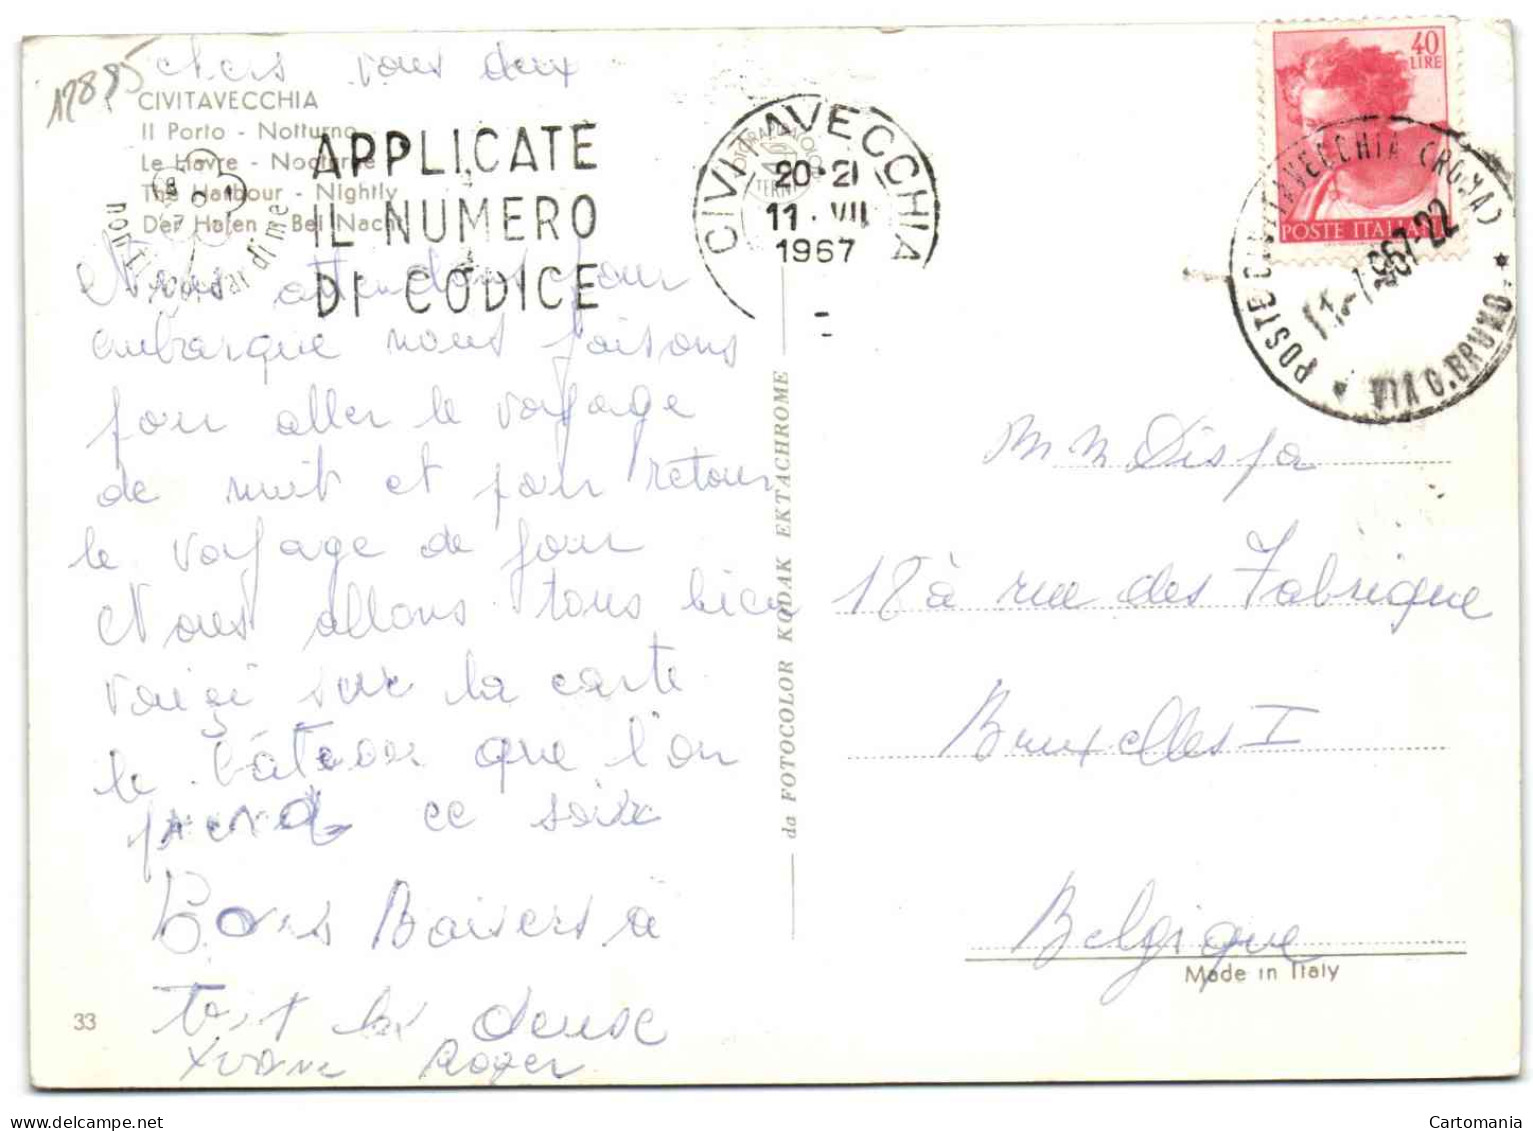 12895
chers vous deux
CIVITAVECCHIA
Il Porto - Notturno
Le Havre - Nocturne
The Harbour - Nightly
Der Hafen - Bei Nacht
non ti scordar di me
APPLICATE
IL NUMERO
DI CODICE
CIVITAVECCHIA
20-21
11 · VII
1967
TERNI
40
LIRE
POSTE ITALIANE
POSTE CIVITAVECCHIA (ROMA)
11-7-1967-22
* VIA G. BRUNO *
Nous attendons pour
embarque nous faisons
pour aller le voyage
de nuit et pour retour
le voyage de jour
Nous allons tous bien
voiçi sur la carte
le bâteau que l'on
prend ce soir
Bons Baisers à
tout les deuse
Yvane Roger
33
da FOTOCOLOR KODAK EKTACHROME
M M Dispa
18 à rue des Fabrique
Bruxelles I
Belgique
Made in Italy
Cartomania